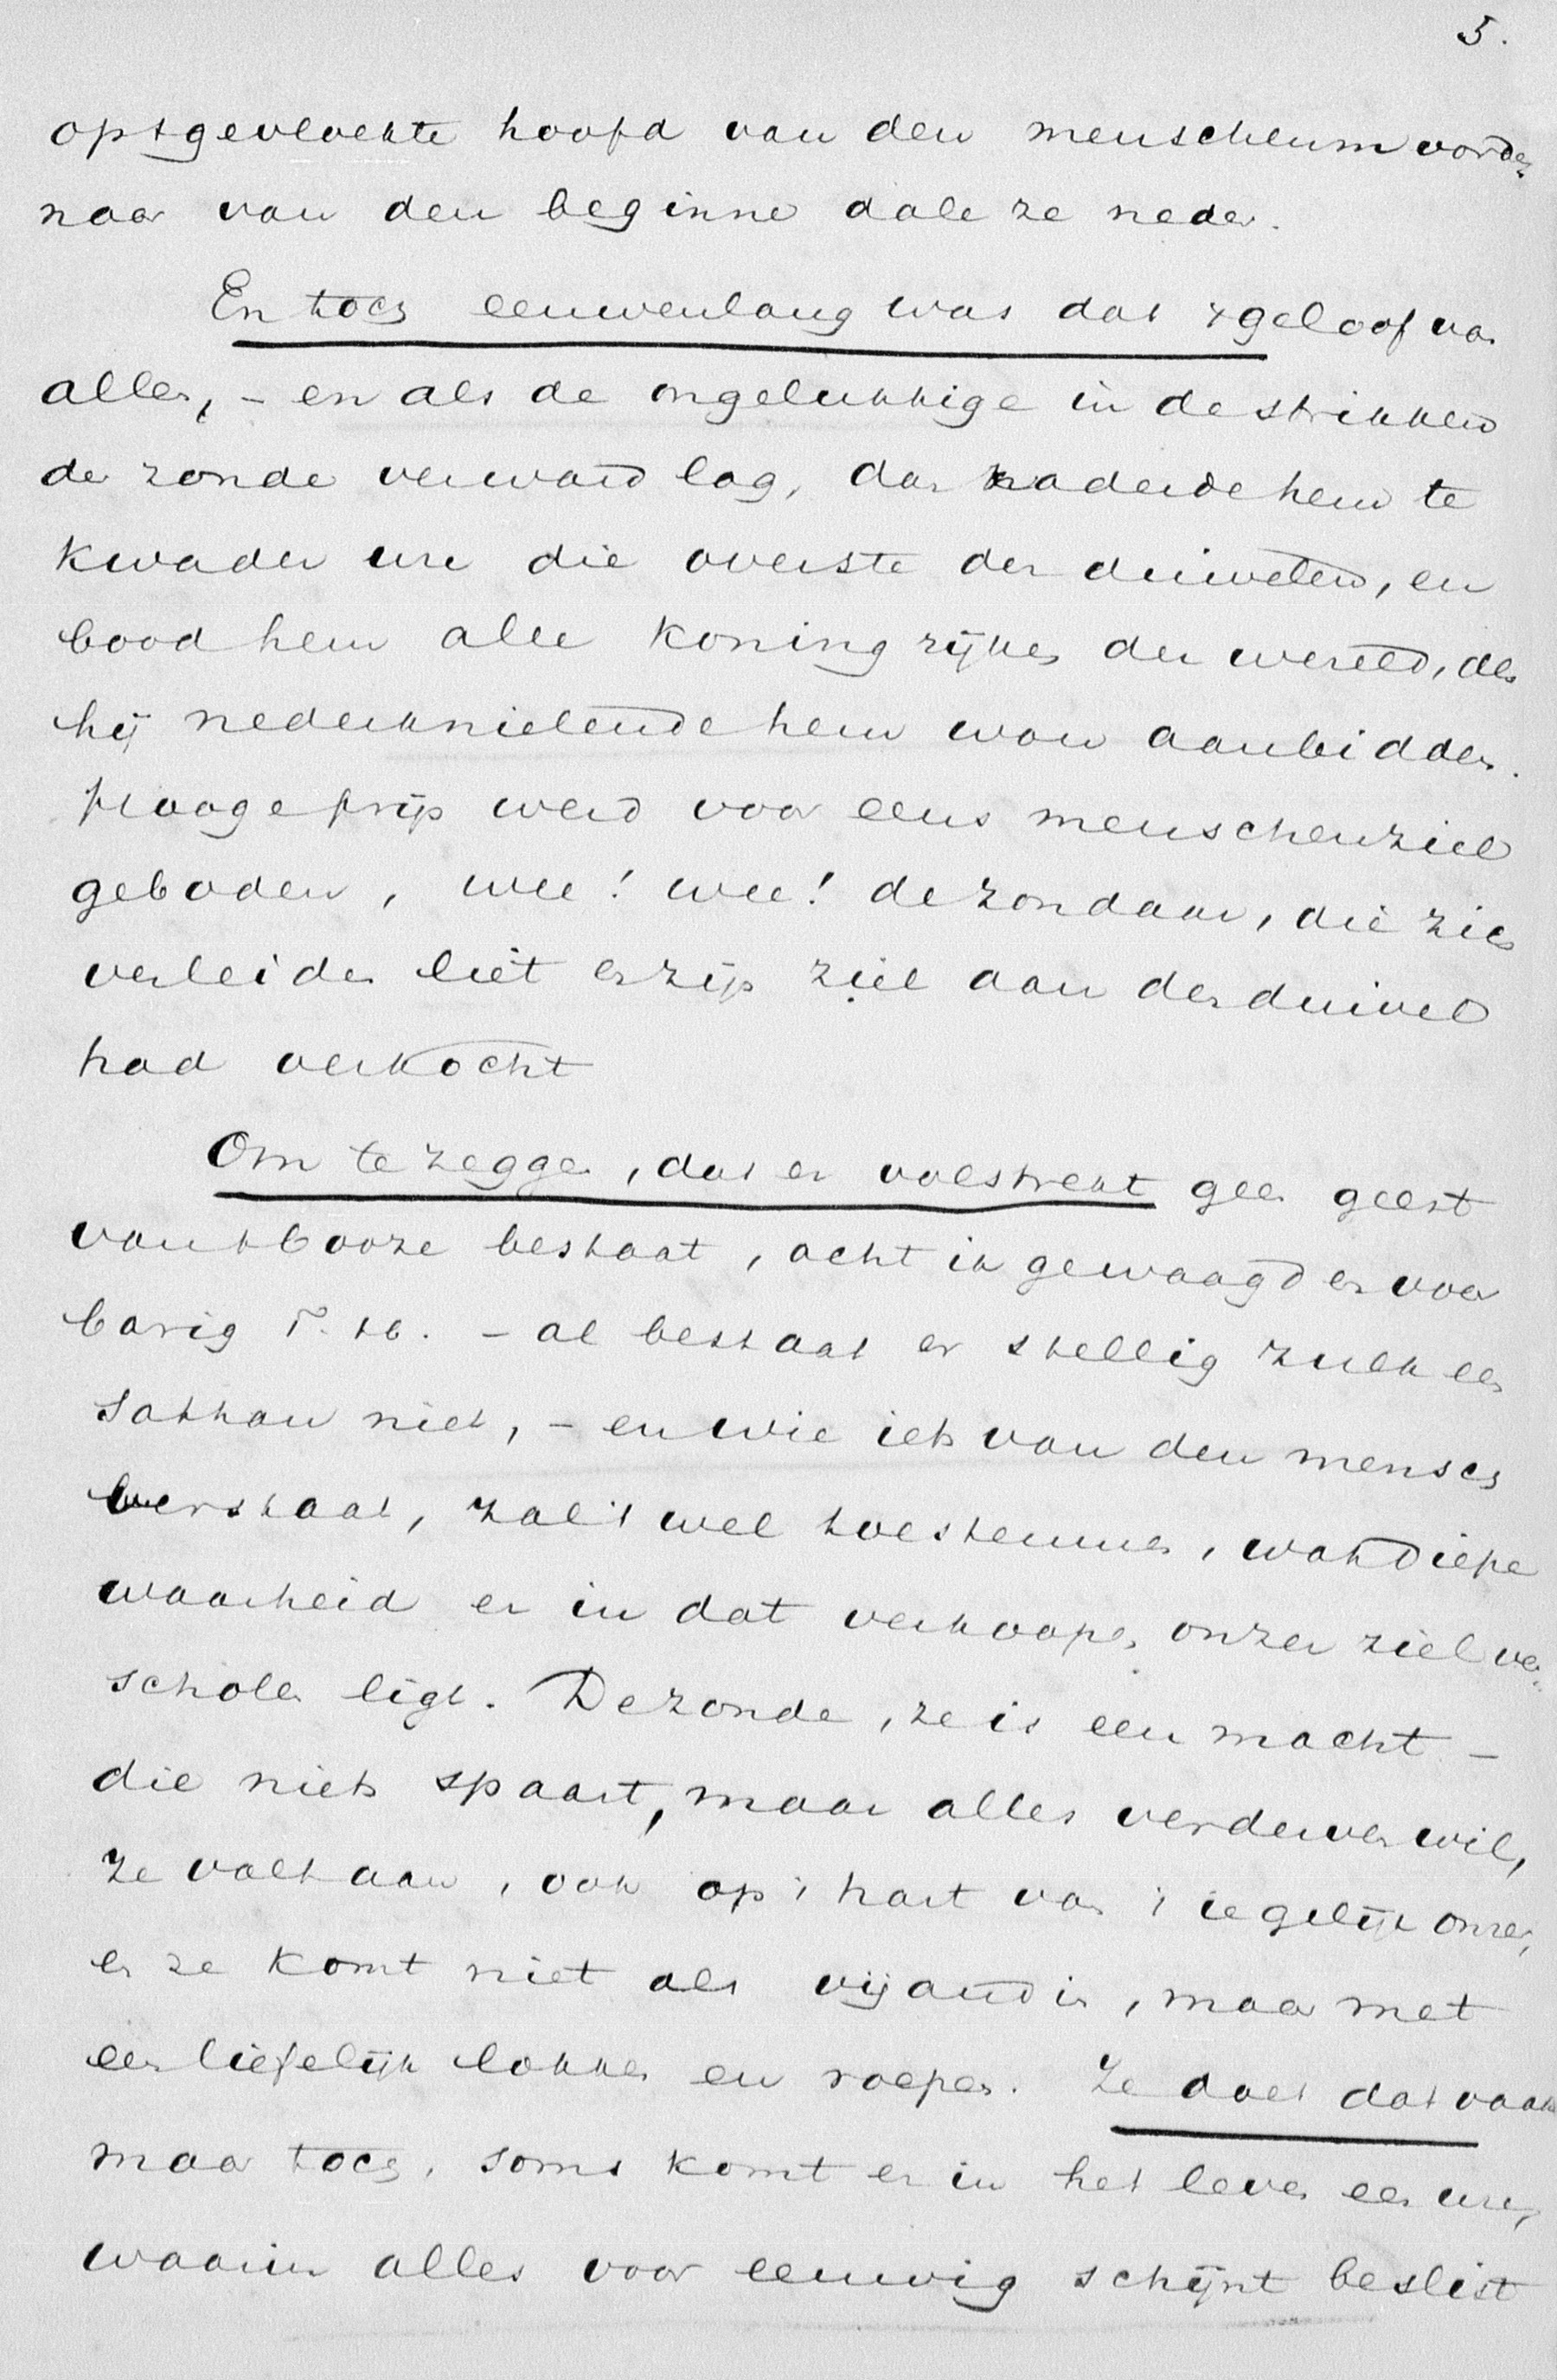 5.
op 't gevloekte hoofd van den menschenmoorde-
naar van den beginne dale ze neder.
En toch eeuwenlang was dat 't geloof van
allen, – en als de ongelukkige in de strikken
der zonde verward lag, dan naderde hem te
kwader ure die overste der duivelen, en
bood hem alle koningrijken der wereld, als
hij nederknielende hem wou aanbidden.
Hooge prijs werd voor eens menschenziel
geboden, wee! wee! de zondaar, die zich
verleiden liet en zijn ziel aan den duivel
had verkocht
Om te zeggen, dat er volstrekt geen geest
van 't booze bestaat, acht ik gewaagd en voor
barig T. H. – al bestaat er stellig zulk een
Satthan niet, – en wie iets van den mensch
verstaat, zal 't wel toestemmen, wat diepe
waarheid er in dat verkoopen onzer ziel ver-
scholen ligt. De zonde, ze is een macht –
die niets spaart, maar alles verderven wil,
ze valt aan, ook op 't hart van 't iegelijk onzer,
en ze komt niet als vijandin, maar met
een liefelijk lokken en roepen. Ze doet dat vaak
maar toch, soms komt er in het leven een ure,
waarin alles voor eeuwig schijnt beslist